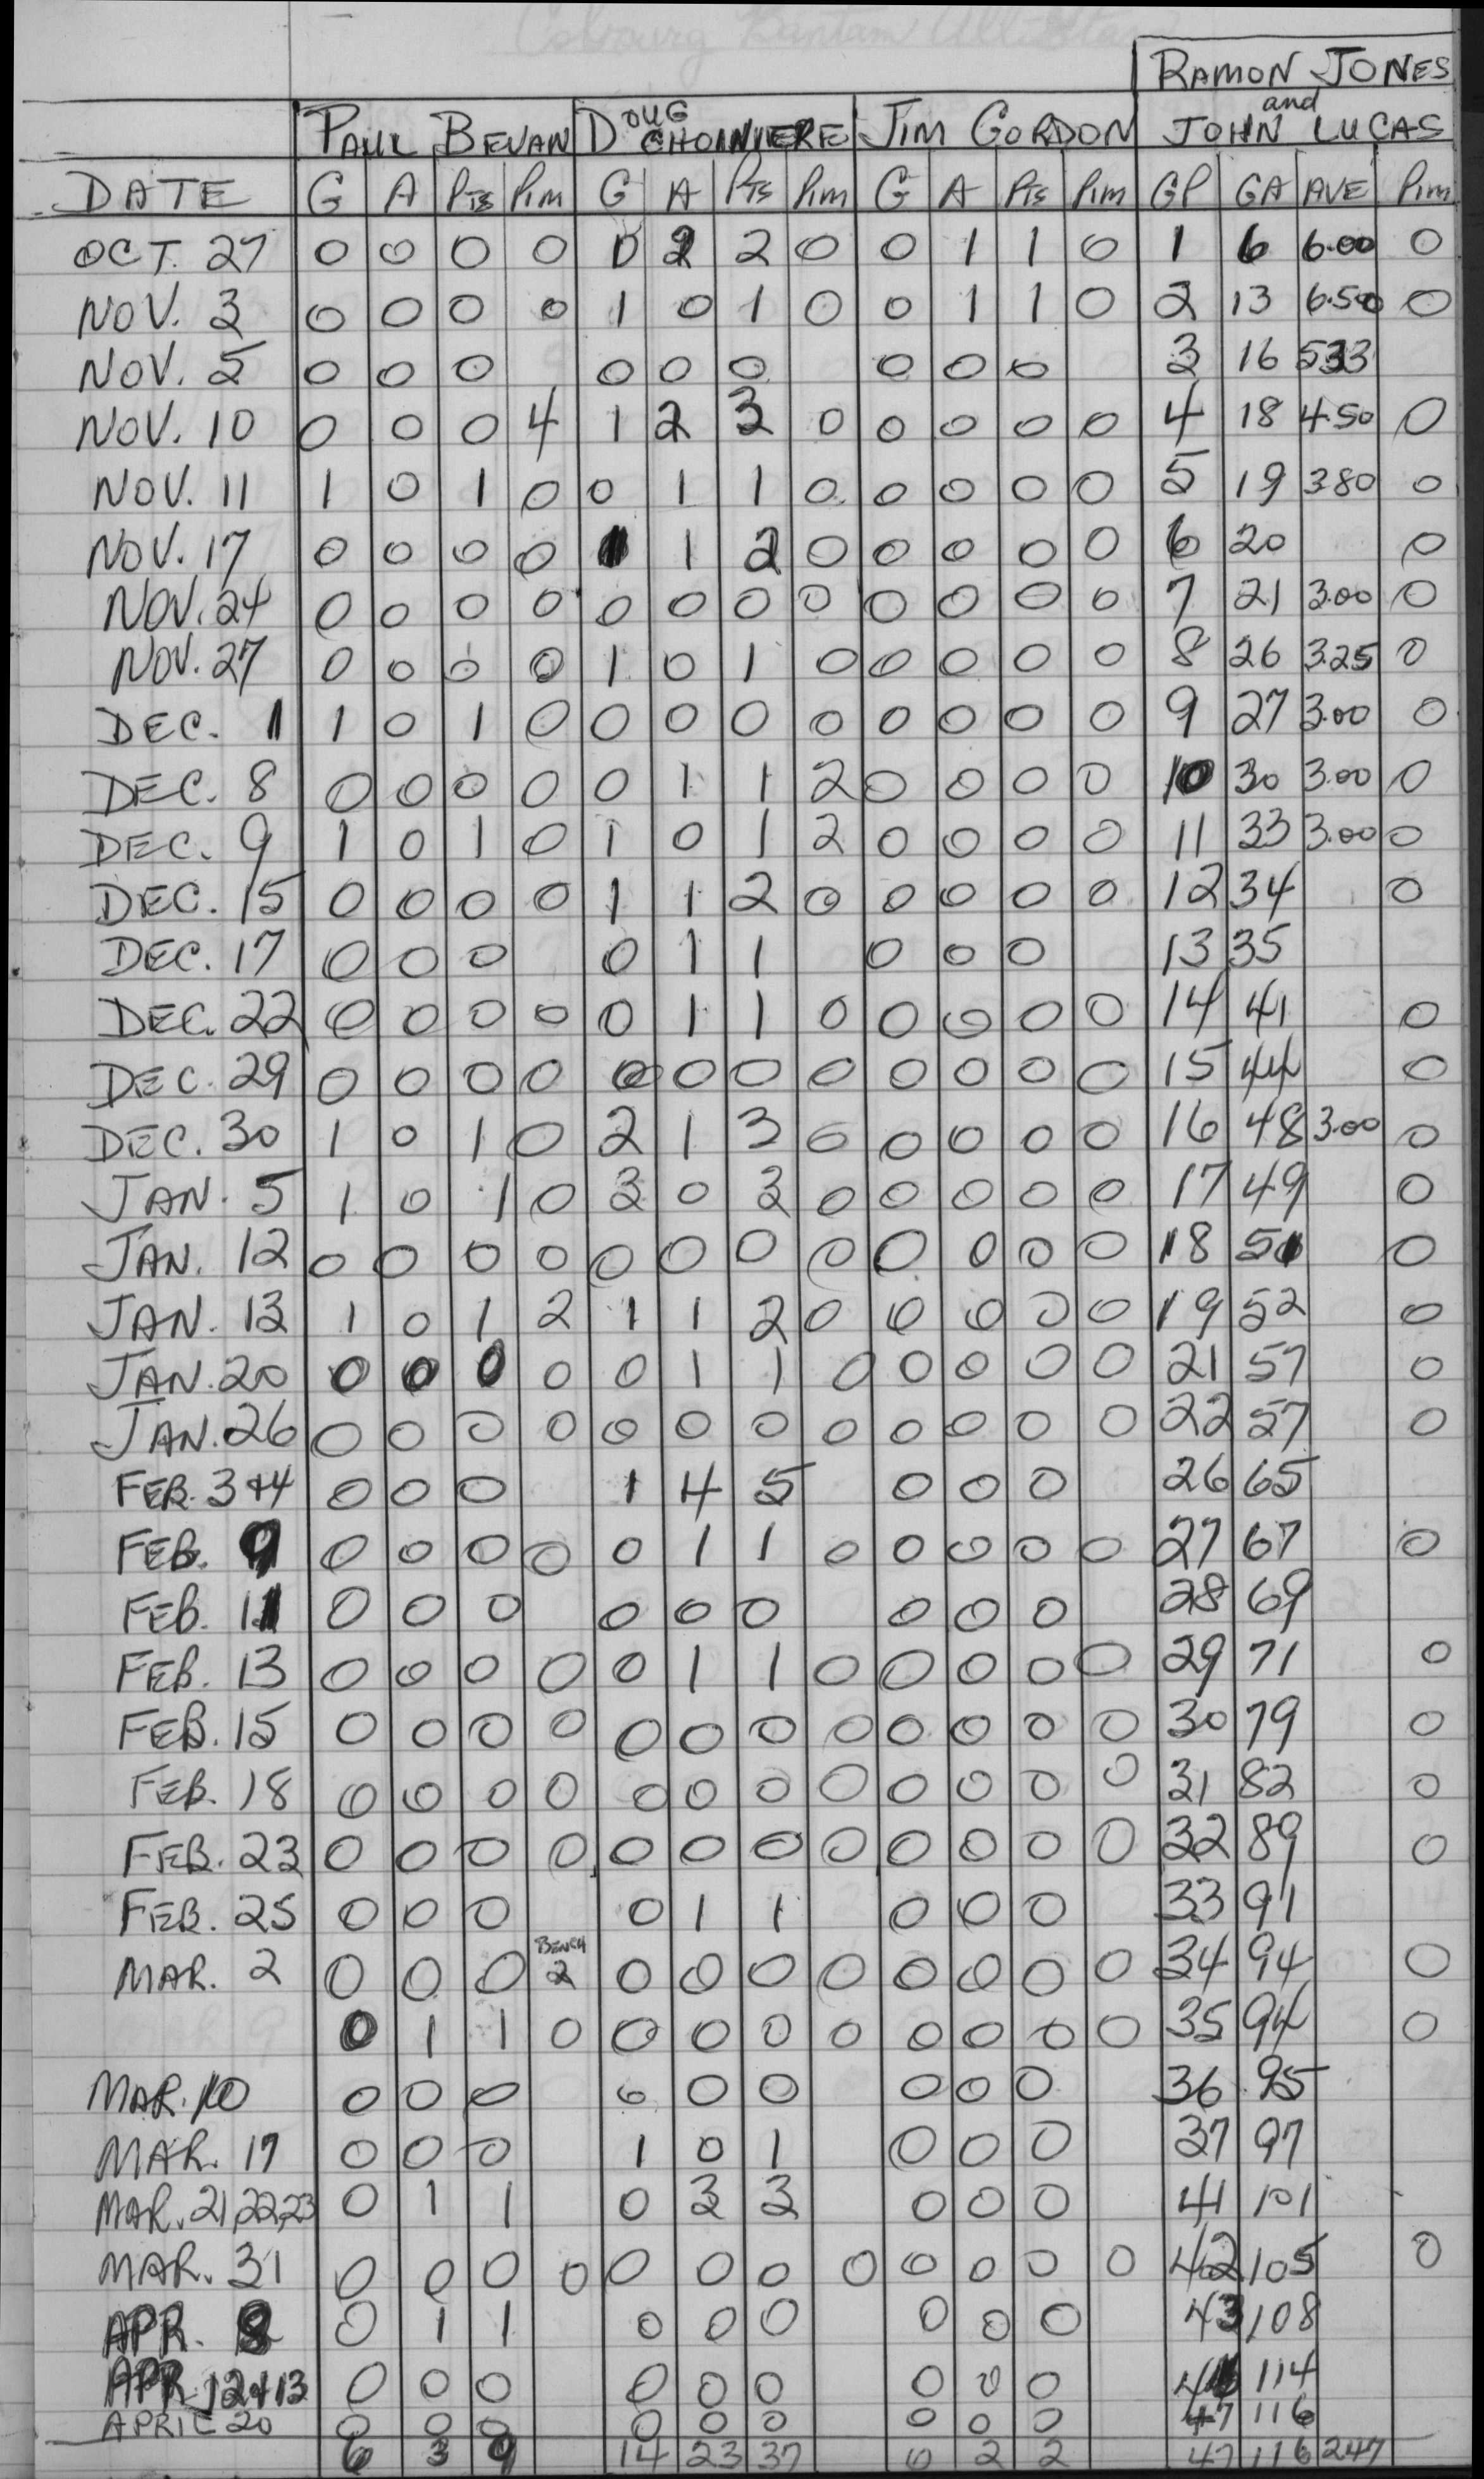 Cobourg Bantam All Star
RAMON JONES
and
PAUL BEVAN DOUG CHOINIERE JIM GORDON JOHN LUCAS
DATE G A PTS PIM G A PTS PIM G A PTS PIM GP GA AVE PIM
OCT. 27 0 0 0 0 0 2 2 0 0 1 1 0 1 6 6.00 0
NOV. 3 0 0 0 0 1 0 1 0 0 1 1 0 2 13 6.50 0
NOV. 5 0 0 0 0 0 0 0 0 0 3 16 533
NOV. 10 0 0 0 4 1 2 3 0 0 0 0 0 4 18 4.50 0
NOV. 11 1 0 1 0 0 1 1 0 0 0 0 0 5 19 380 0
NOV. 17 0 0 0 0 1 1 2 0 0 0 0 0 6 20 0
NOV. 24 0 0 0 0 0 0 0 0 0 0 0 0 7 21 3.00 0
NOV. 27 0 0 0 0 1 0 1 0 0 0 0 0 8 26 3.25 0
DEC. 1 1 0 1 0 0 0 0 0 0 0 0 0 9 27 3.00 0
DEC. 8 0 0 0 0 0 1 1 2 0 0 0 0 10 30 3.00 0
DEC. 9 1 0 1 0 1 0 1 2 0 0 0 0 11 33 3.00 0
DEC. 15 0 0 0 0 1 1 2 0 0 0 0 0 12 34 0
DEC. 17 0 0 0 0 1 1 0 0 0 13 35
DEC. 22 0 0 0 0 0 1 1 0 0 0 0 0 14 41 0
DEC. 29 0 0 0 0 0 0 0 0 0 0 0 0 15 44 0
DEC. 30 1 0 1 0 2 1 3 0 0 0 0 0 16 48 3.00 0
JAN. 5 1 0 1 0 3 0 3 0 0 0 0 0 17 49 0
JAN. 12 0 0 0 0 0 0 0 0 0 0 0 0 18 51 0
JAN. 13 1 0 1 2 1 1 2 0 0 0 0 0 19 52 0
JAN. 20 0 0 0 0 0 1 1 0 0 0 0 0 21 57 0
JAN. 26 0 0 0 0 0 0 0 0 0 0 0 0 22 57 0
FEB. 3+4 0 0 0 1 4 5 0 0 0 26 65
FEB. 9 0 0 0 0 0 1 1 0 0 0 0 0 27 67 0
FEB. 11 0 0 0 0 0 0 0 0 0 28 69
FEB. 13 0 0 0 0 0 1 1 0 0 0 0 0 29 71 0
FEB. 15 0 0 0 0 0 0 0 0 0 0 0 0 30 79 0
FEB. 18 0 0 0 0 0 0 0 0 0 0 0 0 31 82 0
FEB. 23 0 0 0 0 0 0 0 0 0 0 0 0 32 89 0
FEB. 25 0 0 0 0 1 1 0 0 0 33 91
BENCH
MAR. 2 0 0 0 2 0 0 0 0 0 0 0 0 34 94 0
0 1 1 0 0 0 0 0 0 0 0 0 35 94 0
MAR. 10 0 0 0 0 0 0 0 0 0 36 95
MAR. 17 0 0 0 1 0 1 0 0 0 37 97
MAR. 21,22,23 0 1 1 0 3 3 0 0 0 41 101
MAR. 31 0 0 0 0 0 0 0 0 0 0 0 0 42 105 0
APR. 8 0 1 1 0 0 0 0 0 0 43 108
APR. 12+13 0 0 0 0 0 0 0 0 0 46 114
APRIL 20 0 0 0 0 0 0 0 0 0 47 116
6 3 9 14 23 37 0 2 2 47 116 247